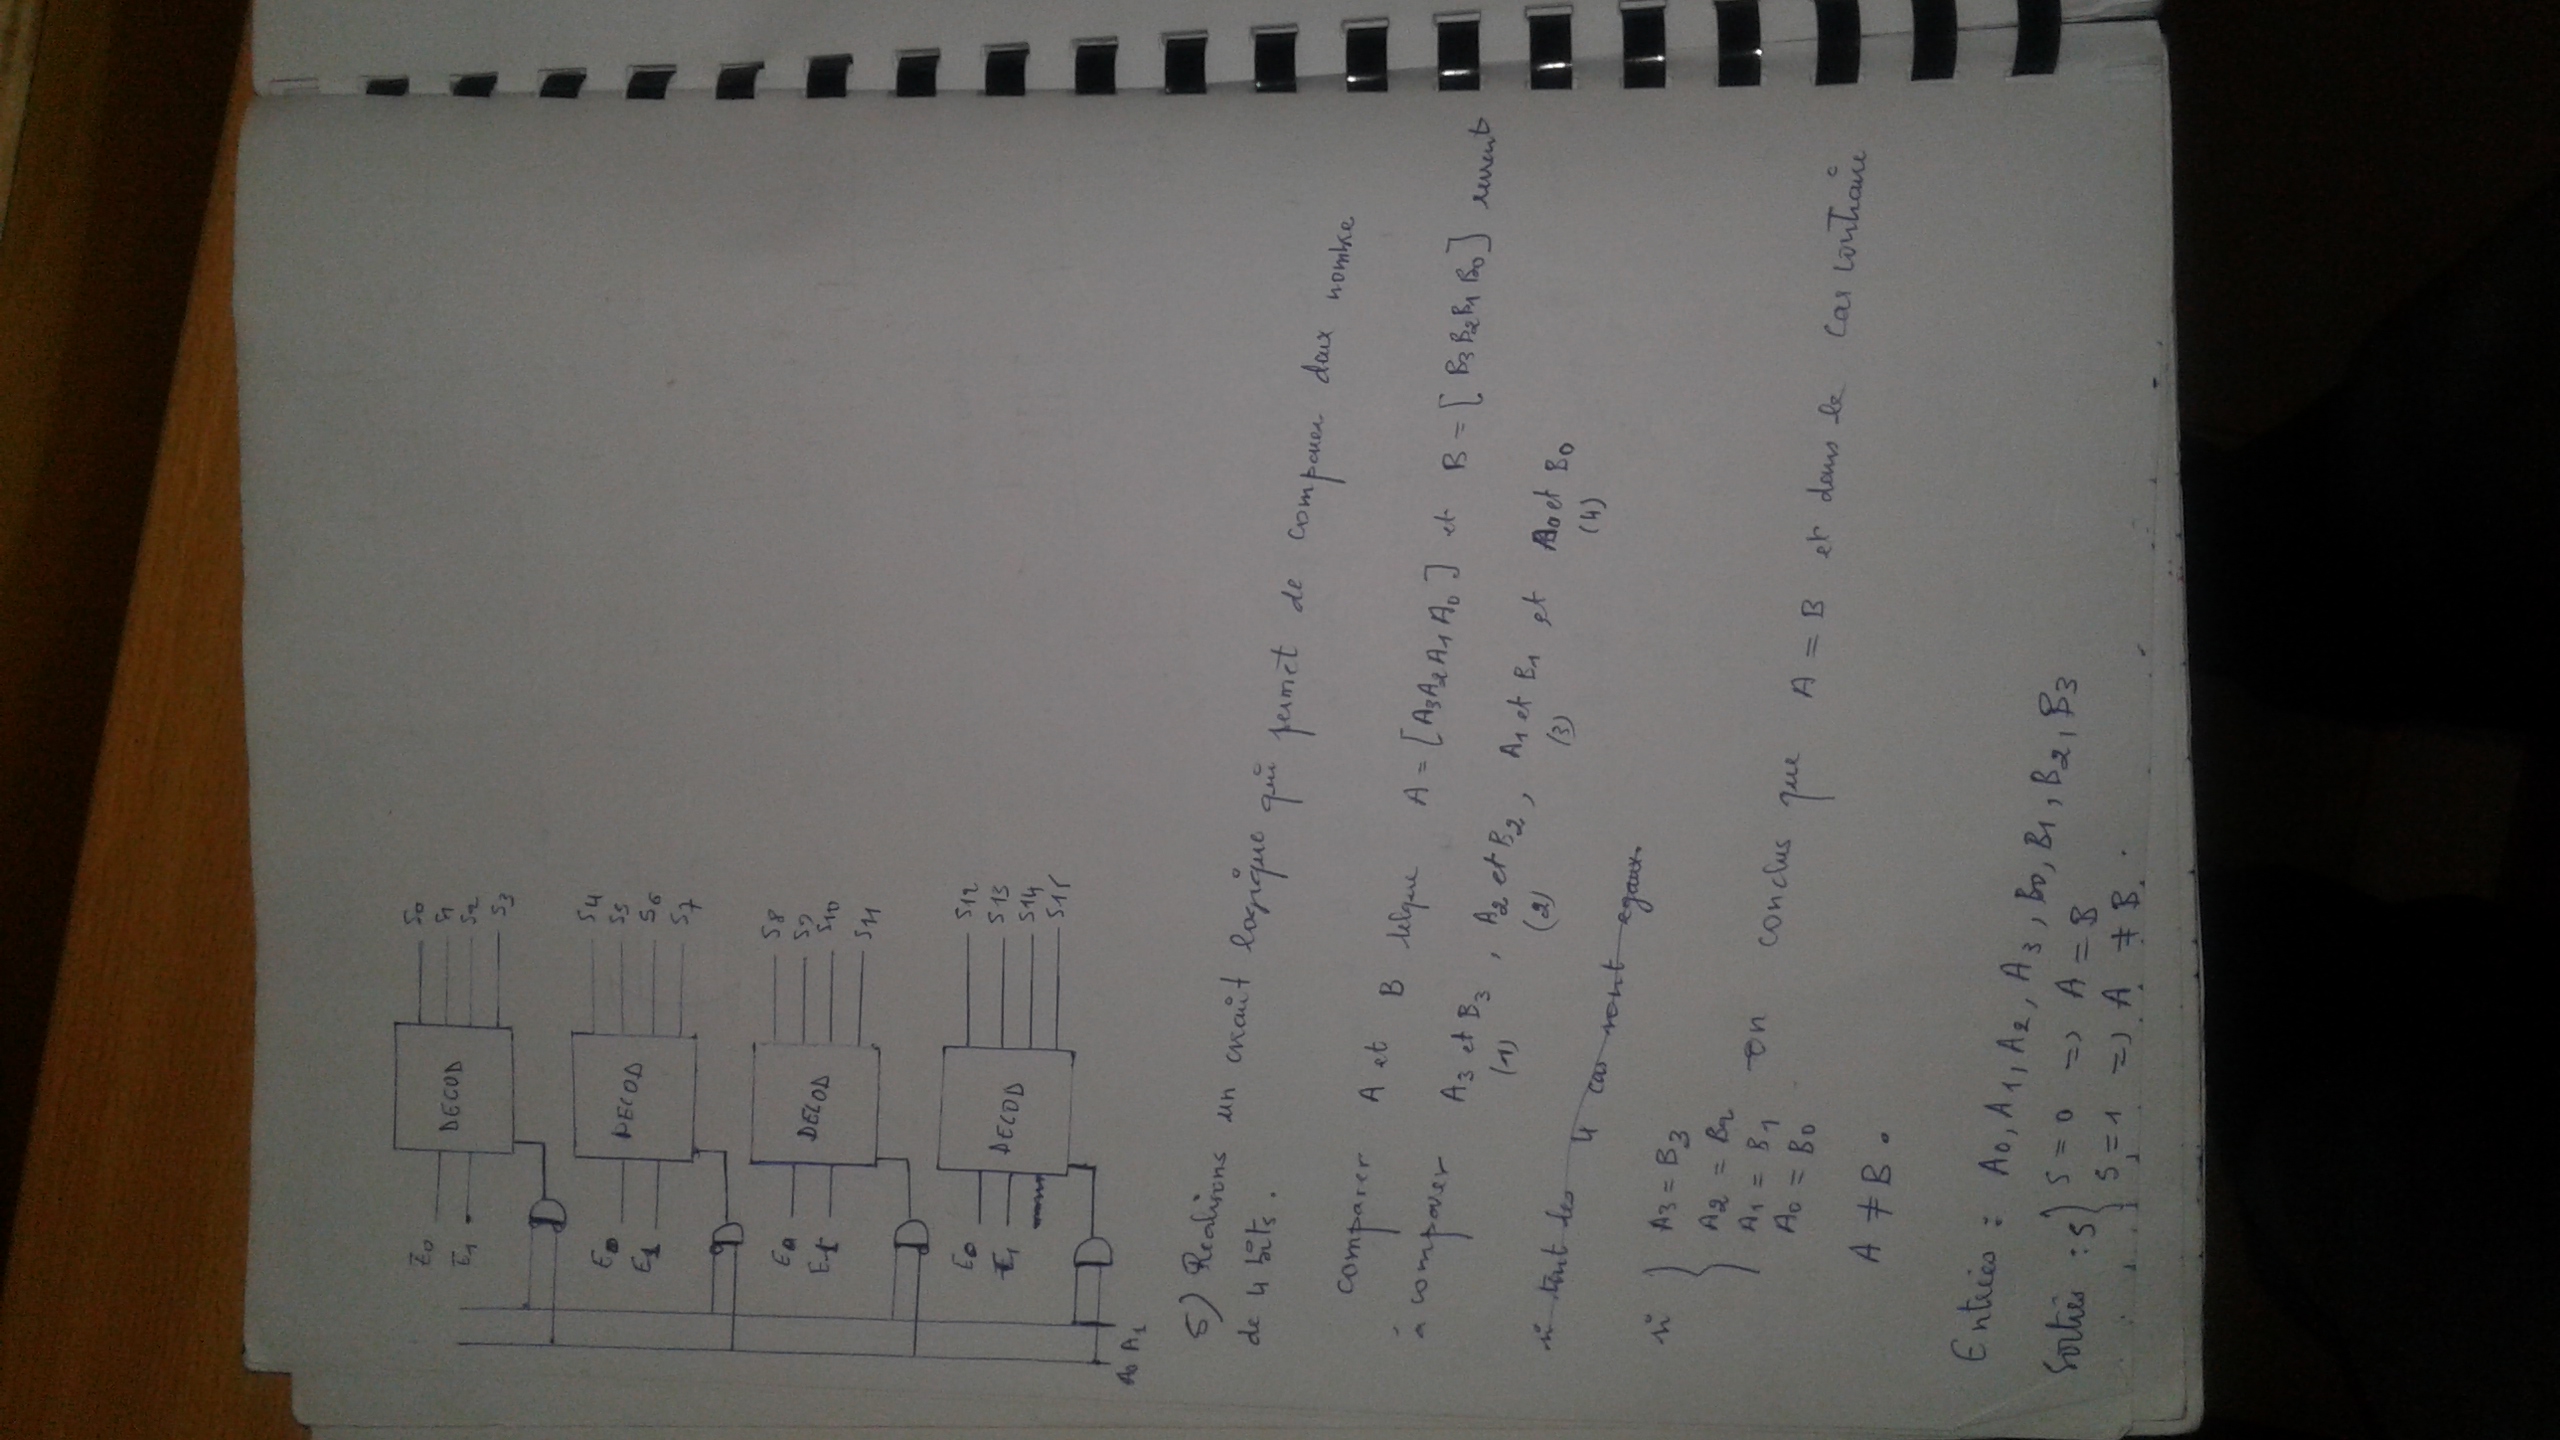 E0 DECOD S0
E1 S1
S2
S3
E0 DECOD S4
E1 S5
S6
S7
E0 DECOD S8
E1 S9
S10
S11
E0 DECOD S12
E1 S13
S14
S15
A0 A1
5) Realisons un circuit logique qui permet de comparer deux nombre
de 4 bits.
comparer A et B telque A = [A3A2A1A0] et B = [B3B2B1B0] revient
à comparer A3 et B3, A2 et B2, A1 et B1 et A0 et B0
(1) (2) (3) (4)
si tout les 4 cas sont egaux
si { A3 = B3
A2 = B2
A1 = B1 on conclus que A = B et dans le cas contraire
A0 = B0
A ≠ B.
Entrées : A0, A1, A2, A3, B0, B1, B2, B3
Sorties : S { S = 0 => A = B
S = 1 => A ≠ B.